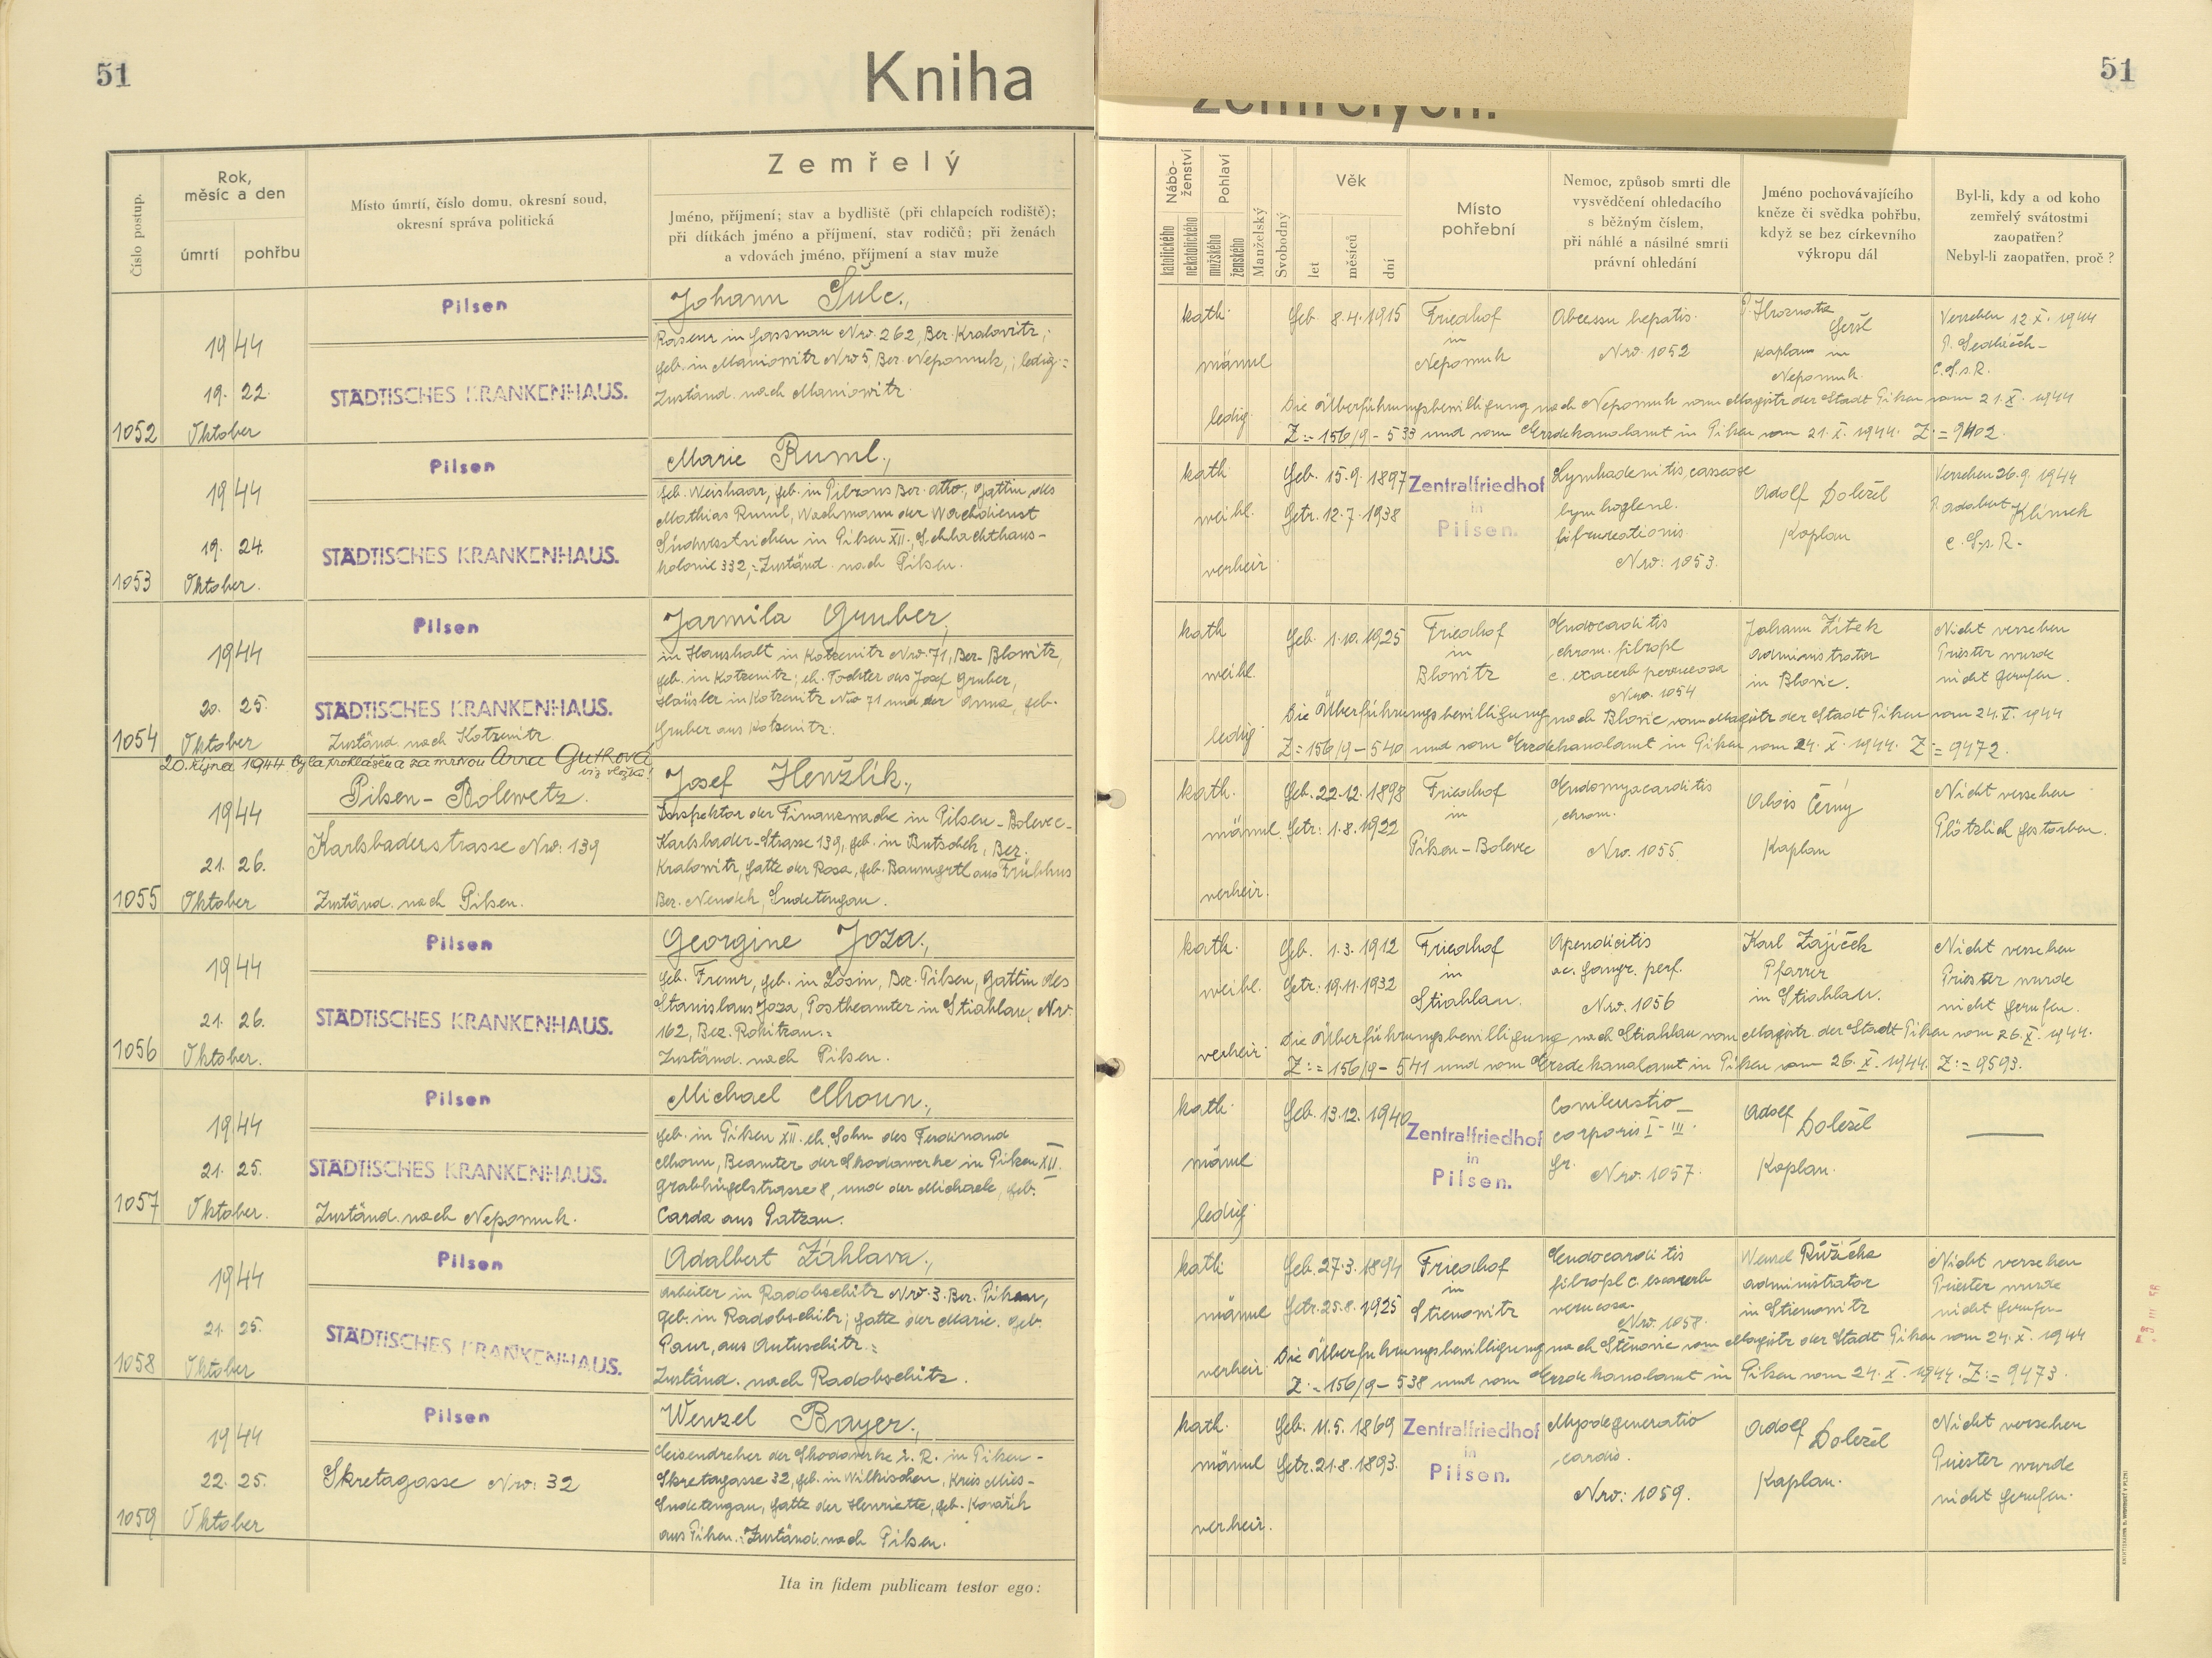 51
Kniha
51
Číslo postup.
Rok,
měsíc a den
úmrtí
pohřbu
Místo úmrtí, číslo domu, okresní soud,
okresní správa politická
Zemřelý
Jméno, příjmení; stav a bydliště (při chlapcích rodiště);
při dítkách jméno a příjmení, stav rodičů; při ženách
a vdovách jméno, příjmení a stav muže
Nábo-
ženství
katolického
nekatolického
Pohlaví
mužského
ženského
Manželský
Svobodný
Věk
let
měsíců
dní
Místo
pohřební
Nemoc, způsob smrti dle
vysvědčení ohledacího
s běžným číslem,
při náhlé a násilné smrti
právní ohledání
Jméno pochovávajícího
kněze či svědka pohřbu,
když se bez církevního
výkropu dál
Byl-li, kdy a od koho
zemřelý svátostmi
zaopatřen?
Nebyl-li zaopatřen, proč?
1052
1944
19. 22.
Oktober
Pilsen
STÄDTISCHES KRANKENHAUS.
Johann Šulc.,
Raseur in Gassnau Nro. 262, Ber. Kralowitz;
geb. in Maniowitz Nro 5, Ber. Nepomuk,; ledig.=
Zuständ. nach Maniowitz.
kath.
männl
ledig
Geb. 8.4.1915
Friedhof
in
Nepomuk
Abcessu hepatis.
Nro. 1052
P. Hroznata
Geršl
Kaplan in
Nepomuk.
Versehen 12 X. 1944
P. Sedláček
C.S.s.R.
Die Überführungsbewilligung nach Nepomuk vom Magistr der Stadt Pilsen vom 21. X. 1944
Z:=156/9-533 und vom Erzdekanalamt in Pilsen vom 21. X. 1944. Z:=9402.
1053
1944
19. 24.
Oktober.
Pilsen
STÄDTISCHES KRANKENHAUS.
Marie Ruml.,
geb. Weishaar, geb. in Pibrans Ber. dtto., Gattin des
Mathias Ruml, Wachmann der Wachdienst
Südwestsichen in Pilsen XII., Schlachthaus-
kolonie 332,=Zuständ. nach Pilsen.
kath
weibl.
verheir
Geb. 15.9. 1897
Getr. 12.7. 1938
Zentralfriedhof
in
Pilsen.
Lymhadenitis caseose
Nro: 1053.
Adolf Doležel
Kaplan
Versehen 26.9. 1944
P. Adalbert Klimek
C.S.s.R.
1054
1944
20. 25.
Oktober
Pilsen
STÄDTISCHES KRANKENHAUS.
Zuständ. nach Kotzenitz.
Jarmila Gruber,
in Haushalt in Kotzenitz Nro. 71, Ber. Blowitz,
geb. in Kotzenitz; eh. Tochter des Josef Gruber,
Häusler in Kotzenitz Nro 71 und der Anna, geb.
Gruber aus Kotzenitz.
kath
weibl.
ledig
Geb. 1.10.1925
Friedhof
in
Blowitz
Endocarditis
chron. fibropl
c. exacerb
Nro. 1054
Johann Zítek
Administrator
in Blovic.
Nicht versehen
Priester wurde
nicht gerufen.
Die Überführungsbewilligung nach Blovic vom Magistr der Stadt Pilsen vom 24. X. 1944
Z:=156/9-540 und vom Erzdekanalamt in Pilsen vom 24. X. 1944. Z:=9472.
20. října 1944 byla prohlášena za mrtvou Anna Gutková
viz vložka!
1055
1944
21. 26.
Oktober
Pilsen-Bolewetz.
Karlsbaderstrasse Nro: 139
Zuständ. nach Pilsen.
Josef Henžlík.,
Inspektor der Finanzwache in Pilsen-Bolevec-
Karlsbader-Strasse 139, geb. in Butschek, Ber.
Kralowitz, Gatte der Rosa, geb. Baumgrtl aus Frühbus
Ber. Neudek, Sudetengau.
kath.
männl.
verheir.
Geb. 22.12. 1898
Getr: 1.8.1922
Friedhof
in
Pilsen-Bolevec
Endomyocarditis
chron.
Nro. 1055
Alois Černý
Kaplan
Nicht versehen
Plötzlich gestorben.
1056
1944
21. 26.
Oktober.
Pilsen
STÄDTISCHES KRANKENHAUS.
Georgine Joza.,
geb. Fremr, geb. in Losin, Ber. Pilsen, Gattin des
Stanislaus Joza, Postbeamter in Stiahlau, Nro.
162, Bez. Rokitzan.=
Zuständ. nach Pilsen.
kath.
weibl.
verheir.
Geb. 1.3.1912
Getr: 19.11.1932
Friedhof
in
Stiahlau.
Apendicitis
ac. gangr. perf.
Nro. 1056
Karl Zajíček
Pfarrer
in Stiahlau.
Nicht versehen
Priester wurde
nicht gerufen.
Die Überführungsbewilligung nach Stiahlau vom Magistr. der Stadt Pilsen vom 26. X. 1944.
Z:=156/9-541 und vom Erzdekanalamt in Pilsen vom 26. X. 1944. Z:=9593.
1057
1944
21. 25.
Oktober.
Pilsen
STÄDTISCHES KRANKENHAUS.
Zuständ. nach Nepomuk.
Michael Mhoun.,
geb. in Pilsen XII. eh. Sohn des Ferdinand
Mhoun, Beamter der Skodawerke in Pilsen XII.
Grabhügelstrasse 8, und der Michaele, geb.
Carda aus Patzau.
kath.
männl
ledig
Geb. 13.12. 1940
Zentralfriedhof
in
Pilsen.
Combustio
corporis I-III.
gr. Nro. 1057.
Adolf Doležel
Kaplan.
1058
1944
21. 25.
Oktober
Pilsen
STÄDTISCHES KRANKENHAUS.
Adalbert Záhlava.,
Arbeiter in Radobschitz Nro. 3. Ber. Pilsen,
geb. in Radobschitz; Gatte der Marie. geb.
Paur, aus Autuschitz.=
Zuständ. nach Radobschitz.
kath
männl
verheir
Geb. 27.3.1894
Getr. 25.8. 1925
Friedhof
in
Stienowitz
Endocarditis
fibropl c. exacerb
verucosa.
Nro. 1058.
Wenzel Růžička
Administrator
in Stienowitz
Nicht versehen
Priester wurde
nicht gerufen
Die Überführungsbewilligung nach Štěnovic vom Magistr der Stadt Pilsen vom 24. X. 1944
Z:=156/9-538 und vom Erzdekanalamt in Pilsen vom 24. X. 1944. Z:=9473.
1059
1944
22. 25.
Oktober
Pilsen
Skretagasse Nro: 32
Wenzel Bayer.,
Eisendreher der Skodawerke i. R. in Pilsen-
Skretagasse 32, geb. in Wilkischen, Kreis Mies-
Sudetengau, Gatte der Henriette, geb. Kovařík
aus Pilsen.=Zuständ. nach Pilsen.
kath.
männl
verheir.
Geb. 11.5. 1869
Getr. 21.8.1893.
Zentralfriedhof
in
Pilsen.
Myodegeneratio
cardis.
Nro: 1059.
Adolf Doležel
Kaplan.
Nicht versehen
Priester wurde
nicht gerufen.
Ita in fidem publicam testor ego: